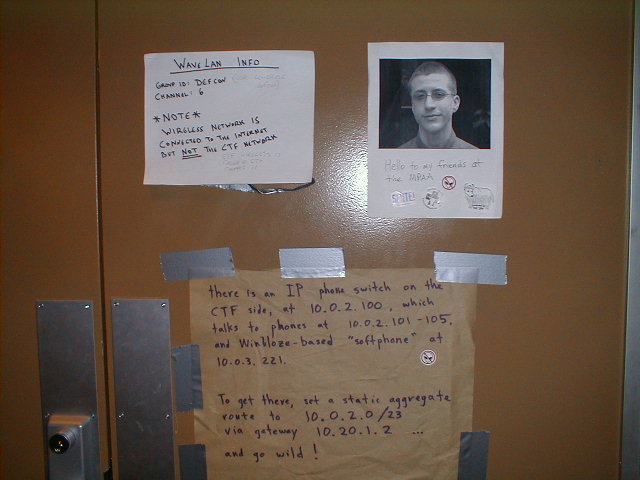 WAVELAN INFO
GROUP ID: DEFCON
CHANNEL: 6
*NOTE*
WIRELESS NETWORK IS
CONNECTED TO THE INTERNET
BUT NOT THE CTF NETWORK
Hello to my friends at
the MPAA
there is an IP phone switch on the
CTF side, at 10.0.2.100, which
talks to phones at 10.0.2.101-105,
and Winbloze-based "softphone" at
10.0.3.221.
To get there, set a static aggregate
route to 10.0.2.0/23
via gateway 10.20.1.2 ...
and go wild!